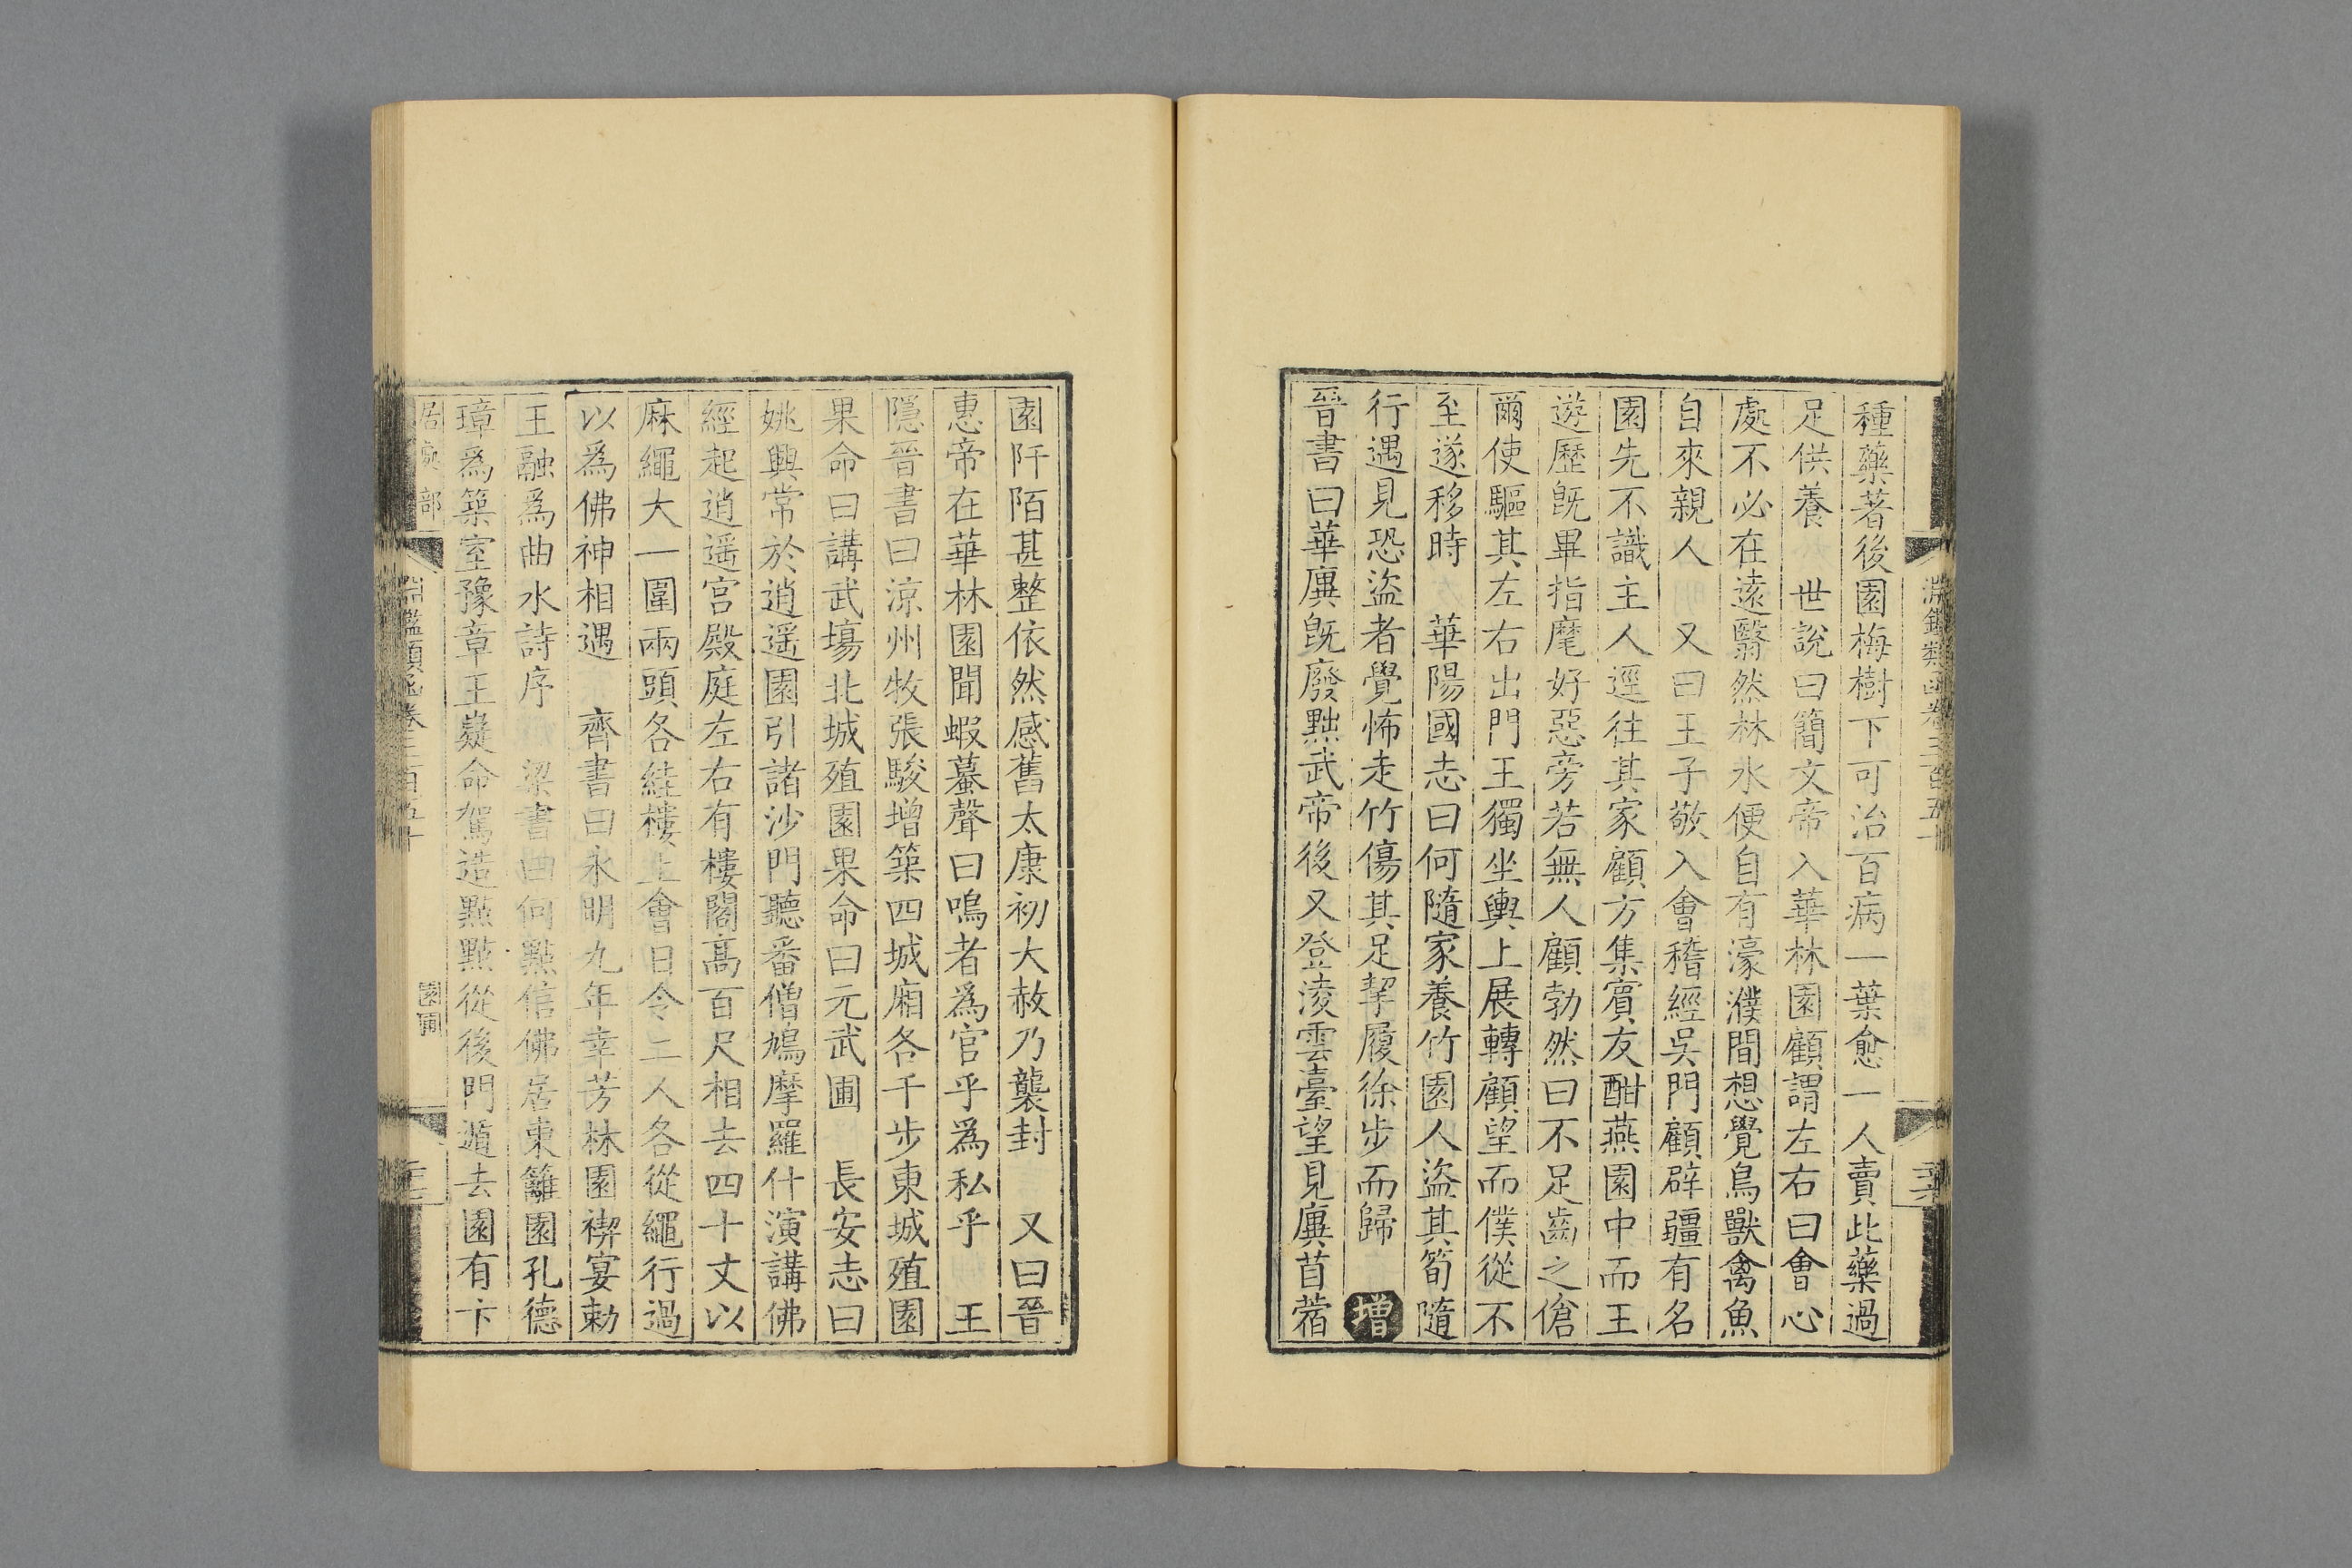 淵鑑類函卷三百五十
種藥著後園梅樹下可治百病一葉愈一人賣此藥過
足供養　世說曰簡文帝入華林園顧謂左右曰會心
處不必在遠翳然林水便自有濠濮間想覺鳥獸禽魚
自來親人　又曰王子敬入會稽經吳門顧辟疆有名
園先不識主人逕往其家顧方集賓友酣燕園中而王
遊歷旣畢指麾好惡旁若無人顧勃然曰不足齒之傖
爾使驅其左右出門王獨坐輿上展轉顧望而僕從不
至遂移時　華陽國志曰何隨家養竹園人盜其筍隨
行遇見恐盜者覺怖走竹傷其足挈履徐步而歸　增
晉書曰華廙旣廢黜武帝後又登淩雲臺望見廙苜蓿
園阡陌甚整依然感舊太康初大赦乃襲封　又曰晉
惠帝在華林園聞蝦蟇聲曰鳴者爲官乎爲私乎　王
隱晉書曰涼州牧張駿增築四城廂各千步東城殖園
果命曰講武塲北城殖園果命曰元武圃　長安志曰
姚興常於逍遥園引諸沙門聽番僧鳩摩羅什演講佛
經起逍遥宮殿庭左右有樓閣高百尺相去四十丈以
麻繩大一圍兩頭各絓樓上會日令二人各從繩行過
以爲佛神相遇　齊書曰永明九年幸芳林園禊宴勅
王融爲曲水詩序　梁書曰何點信佛居東籬園孔德
璋爲築室豫章王嶷命駕造點點從後門遁去園有卞
居處部
淵鑑類函卷三百五十
園圃